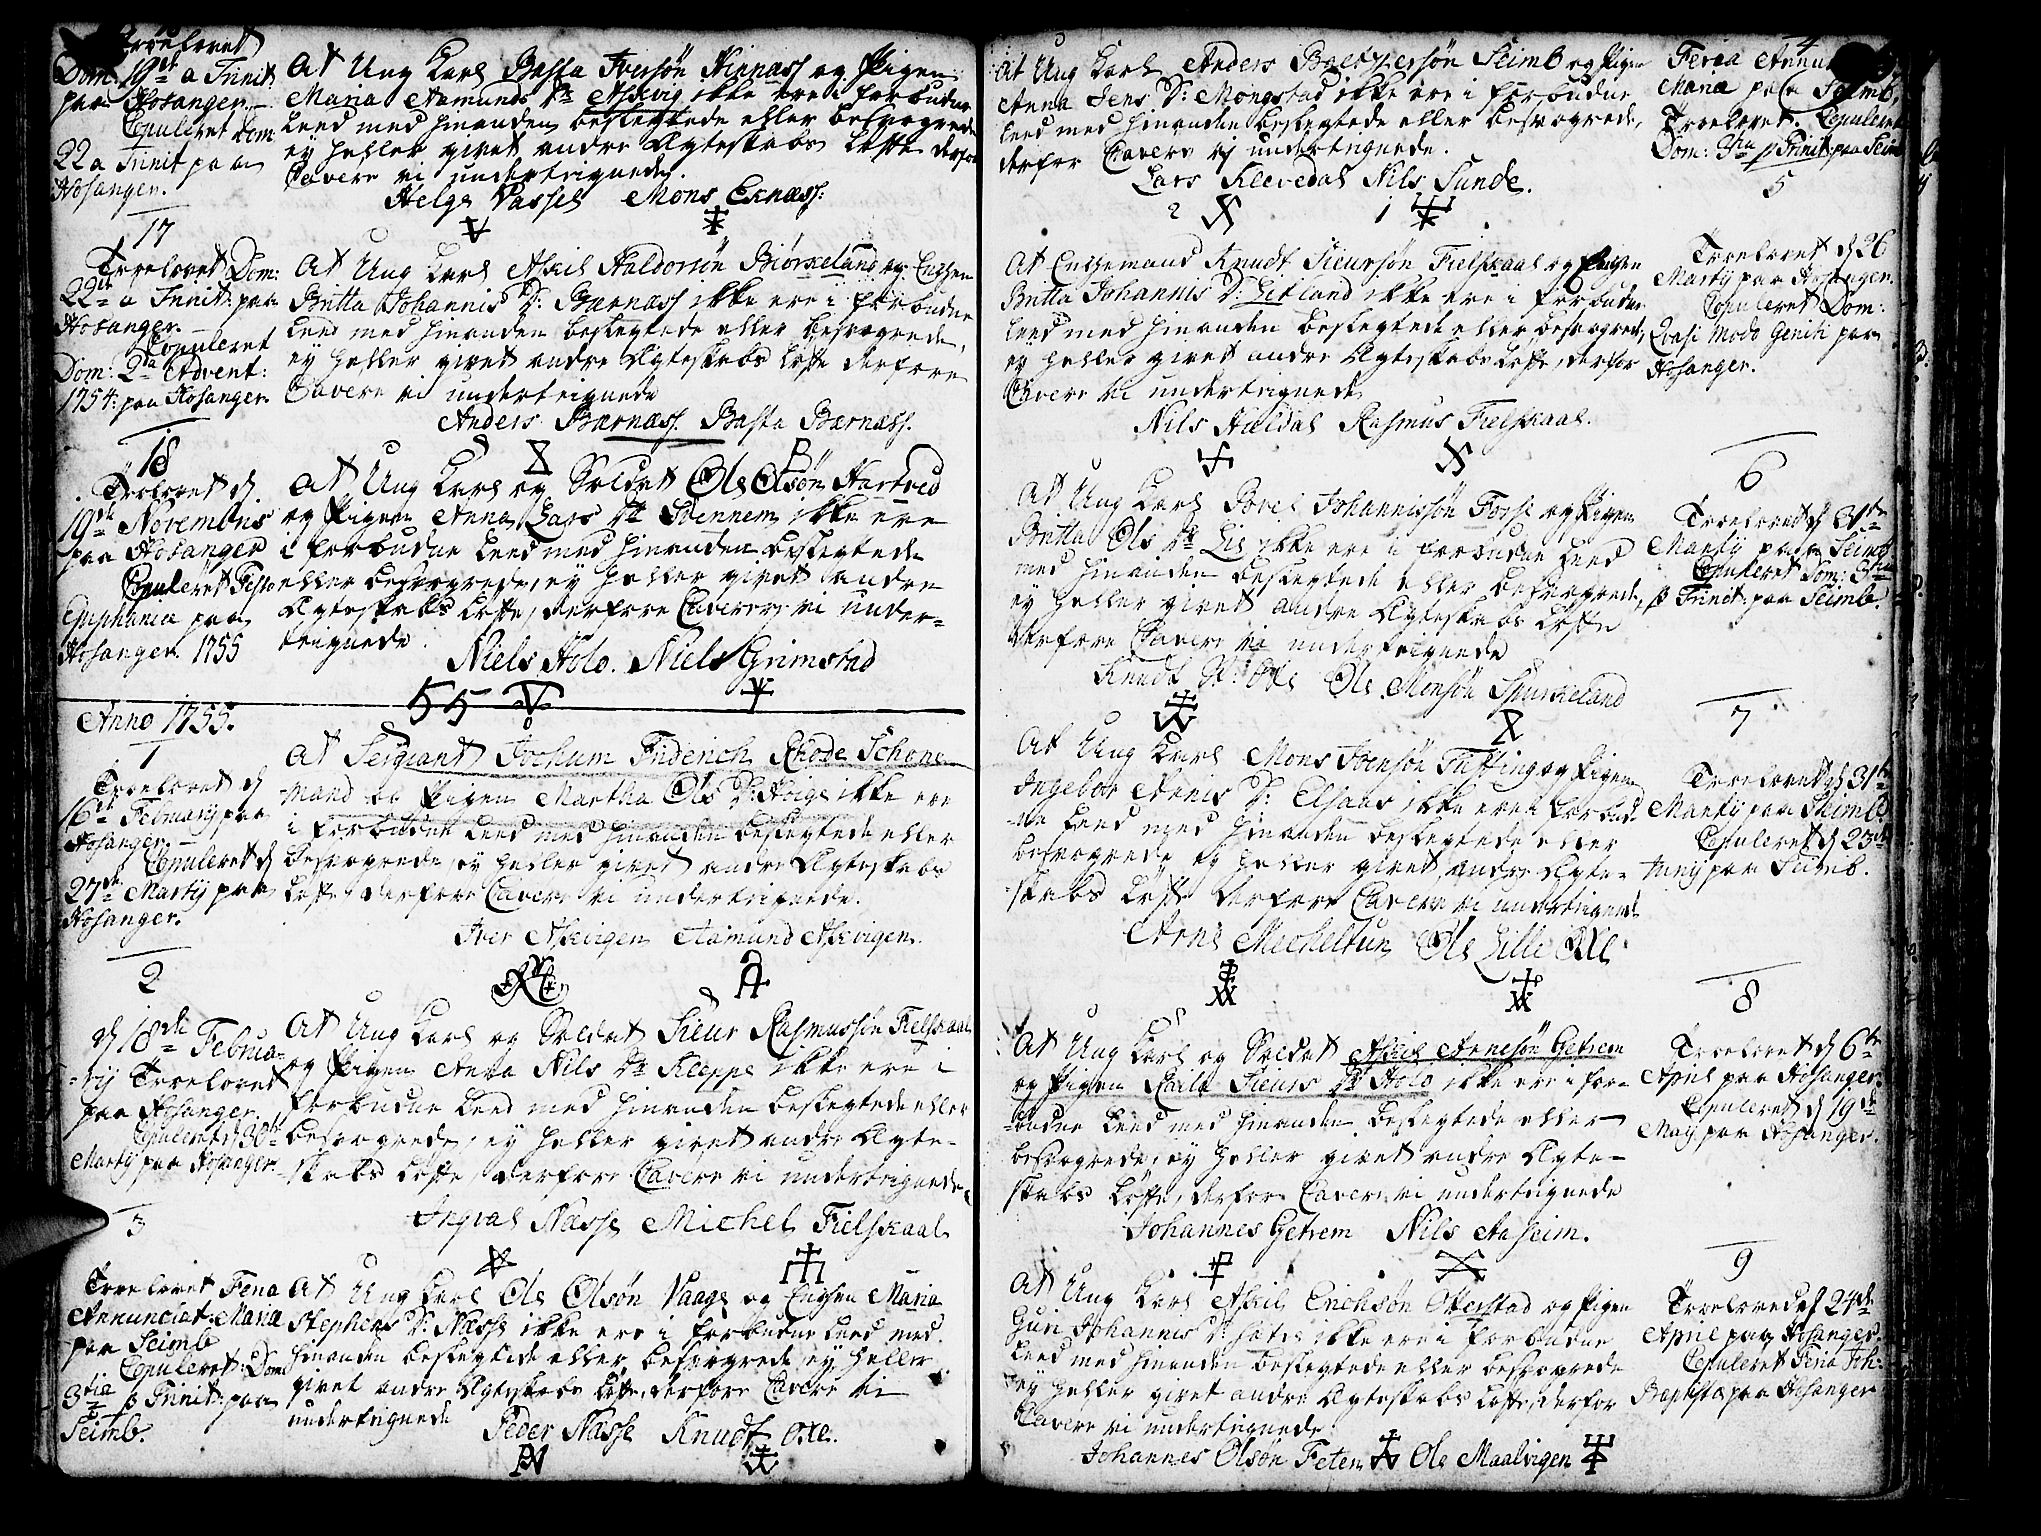 Troelovet
Dom: 19de a Trinit.
paa Hosanger.
Copuleret Dom
22 a Trinit paa
Hosanger.
At Ung Karl Basta Iversøn og Pigen
Maria Aamunds Dr Askevig ikke ere i forbudne
Leed med hinanden beslegtede eller besvogrede
ey heller givet andre Ægteskabs Løfte derfore
Cavere vi undertegnede.
Helge Vassel Mons Eknæss.
17
Troelovet Dom:
22de a Trinit: paa
Hosanger.
Copuleret
Dom: 2da Advent:
1754: paa Hosanger.
At Ung Karl Askil Haldorsøn Biørkeland og Enchen
Britta Johannis D: Bærnæss ikke ere i forbudne
Leed med hinanden beslegtede eller besvogrede,
ey heller givet andre Ægteskabs Løfte derfore
Cavere vi undertegnede
Anders Bærnæss. Basta Bærnæss.
18
Troelovet d.
19de Novembris
paa Hosanger
Copuleret Festo
Epiphania paa
Hosanger. 1755
At Ung Karl og Soldat Ole Olsøn Hartved
og Pigen Anna Lars Dr ikke ere
i forbudne Leed med hinanden beslegtede
eller besvogrede, ey heller givet andre
Ægteskabs Løfte, derfore Caverere vi under-
tegnede.
Niels Holo. Niels Grimstad
55
Anno 1755.
1
Troelovet d
16de Februarij paa
Hosanger.
Copuleret d
27de Martij paa
Hosanger.
At Sergiant Jochum Friderich Rhode Schone
mand og Pigen Martha Ols D: ikke ere
i forbudne Leed med hinanden beslegtede eller
besvogrede, ey heller givet andre Ægteskabs
Løfte, derfore Cavere vi undertegnede.
Iver Askvigen Aamund Askvigen.
2
d 18de Februa-
rij Troelovet
paa Hosanger.
Copuleret d 30te
Martij paa Hosanger.
At Ung Karl og Soldat Sieur Rasmussøn Fielskaal
og Pigen Anna Nils Dr Kleppe ikke ere i
forbudne Leed med hinanden beslegtede eller
besvogrede, ey heller givet andre Ægte-
skabs Løfte, derfore Cavere vi undertegnede.
Ingval Næsse Michel Fielskaal
3
Troelovet Feria
Annunciat: Maria
paa Seimb
Copuleret Dom
3tia p Trinit: paa
Seimb.
At Ung Karl Ole Olsøn Vaage og Enchen Maria
Stephens D: Næsse ikke ere i forbudne Leed med
hinanden beslegtede eller besvogrede ey heller
givet andre Ægteskabs Løfte, derfore Cavere vi
undertegnede
Peder Næsse Knudt Oxe.
4
At Ung Karl Anders Seimb og Pigen
Anna Jens D: Mongstad ikke ere i forbudne
Leed med hinanden beslegtede eller besvogrede,
derfor Cavere vi undertegnede.
Lars Klevedal Nils Sunde.
2 1
Feria
Maria paa Seimb,
Troelovet. Copuleret
Dom: 3tia p Trinit paa Seim
5
At Enchemand Knudt Sieursøn Fielskaal og Pigen
Britta Johannis D: Litland ikke ere i forbudne
Leed med hinanden beslegtede eller besvogrede,
ey heller givet andre Ægteskabs Løfte, derfor
Cavere vi undertegnede
Nils Haldal Rasmus Fielskaal.
Troelovet d 26
Martij paa Hosanger.
Copuleret Dom:
Qvasi Modo Geniti paa
Hosanger.
6
At Ung Karl Povel Johannissøn Fosse og Pigen
Britta Ols Dr Lie ikke ere i forbudne Leed
med hinanden beslegtede eller besvogrede,
ey heller givet andre Ægteskabs Løfte
derfore Cavere vi undertegnede
Knudt Oxe Ole Monsøn Spurkeland
Troelovet d 31te
Martij paa Seimb
Copuleret Dom: 3tia
p Trinit: paa Seimb.
7
At Ung Karl Mons Ivensøn og Pigen
Ingebor Arnis D: Elsaas ikke ere i forbud-
ne Leed med hinanden beslegtede eller
besvogrede ey heller givet andre Ægte-
skabs Løfte derfore Cavere vi undertegnede
Arne Mecheltun Ole Lille Oxe.
Troelovet d 31te
Martij paa Seimb
Copuleret d 23de
Junij paa Seimb.
8
At Ung Karl og Soldat Askil Arnesøn Getrem
og Pigen Sieurs Dr Holo ikke ere i for-
budne Leed med hinanden beslegtede eller
besvogrede, ey heller givet andre Ægte-
skabs Løfte, derfore Cavere vi undertegnede
Johannes Getrem Nils Aaseim.
Troelovet d 6te
April paa Hosanger.
Copuleret d 19de
Maij paa Hosanger.
9
At Ung Karl Askil Erichsøn Otterstad og Pigen
Guri Johannis D: ikke ere i forbudne
Leed med hinanden beslegtede eller besvogrede
ey heller givet andre Ægteskabs Løfte, derfor
Cavere vi undertegnede
Johannes Olsøn Feten Ole Maalvigen
Troelovet d 24de
April paa Hosanger.
Copuleret Feria Joh:
Baptista paa Hosanger